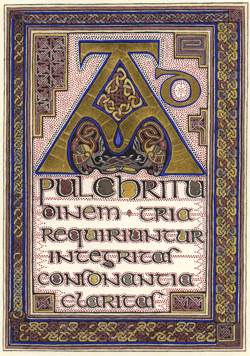 Ad
pulchritu
dinem · tria
requiriuntur
integritas
consonantia
claritas